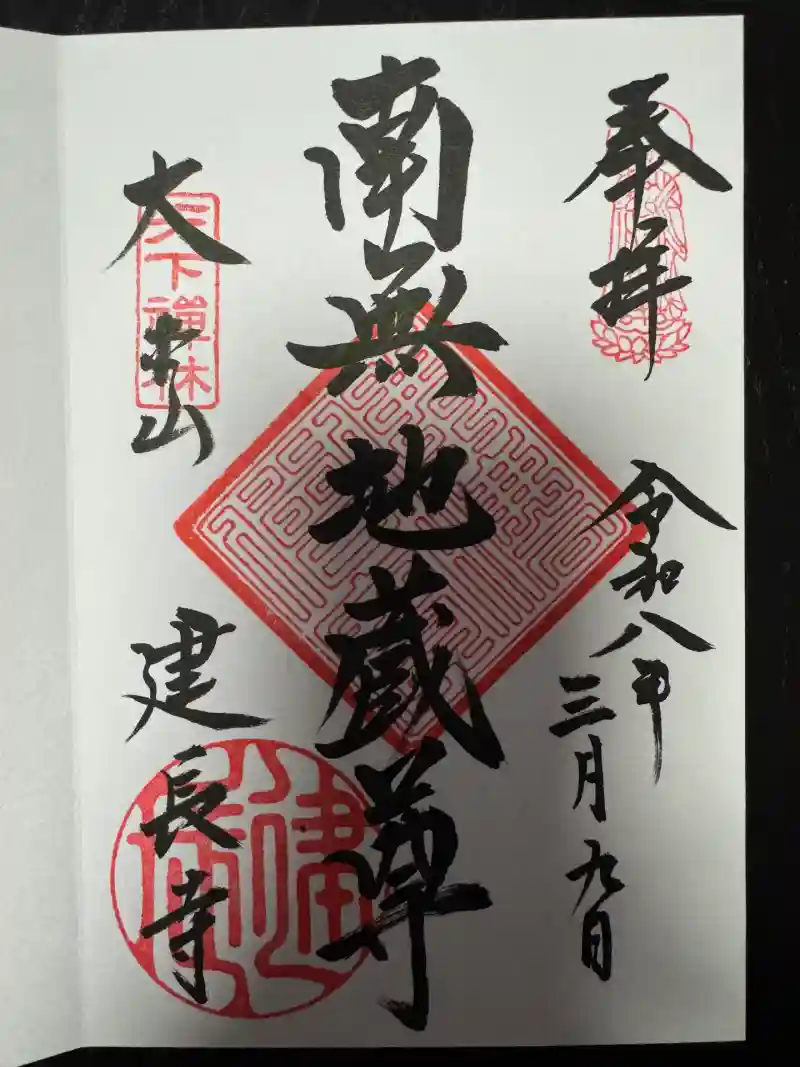 奉拝
令和八年
三月九日
南無地蔵尊
大本山
建長寺
天下禪林